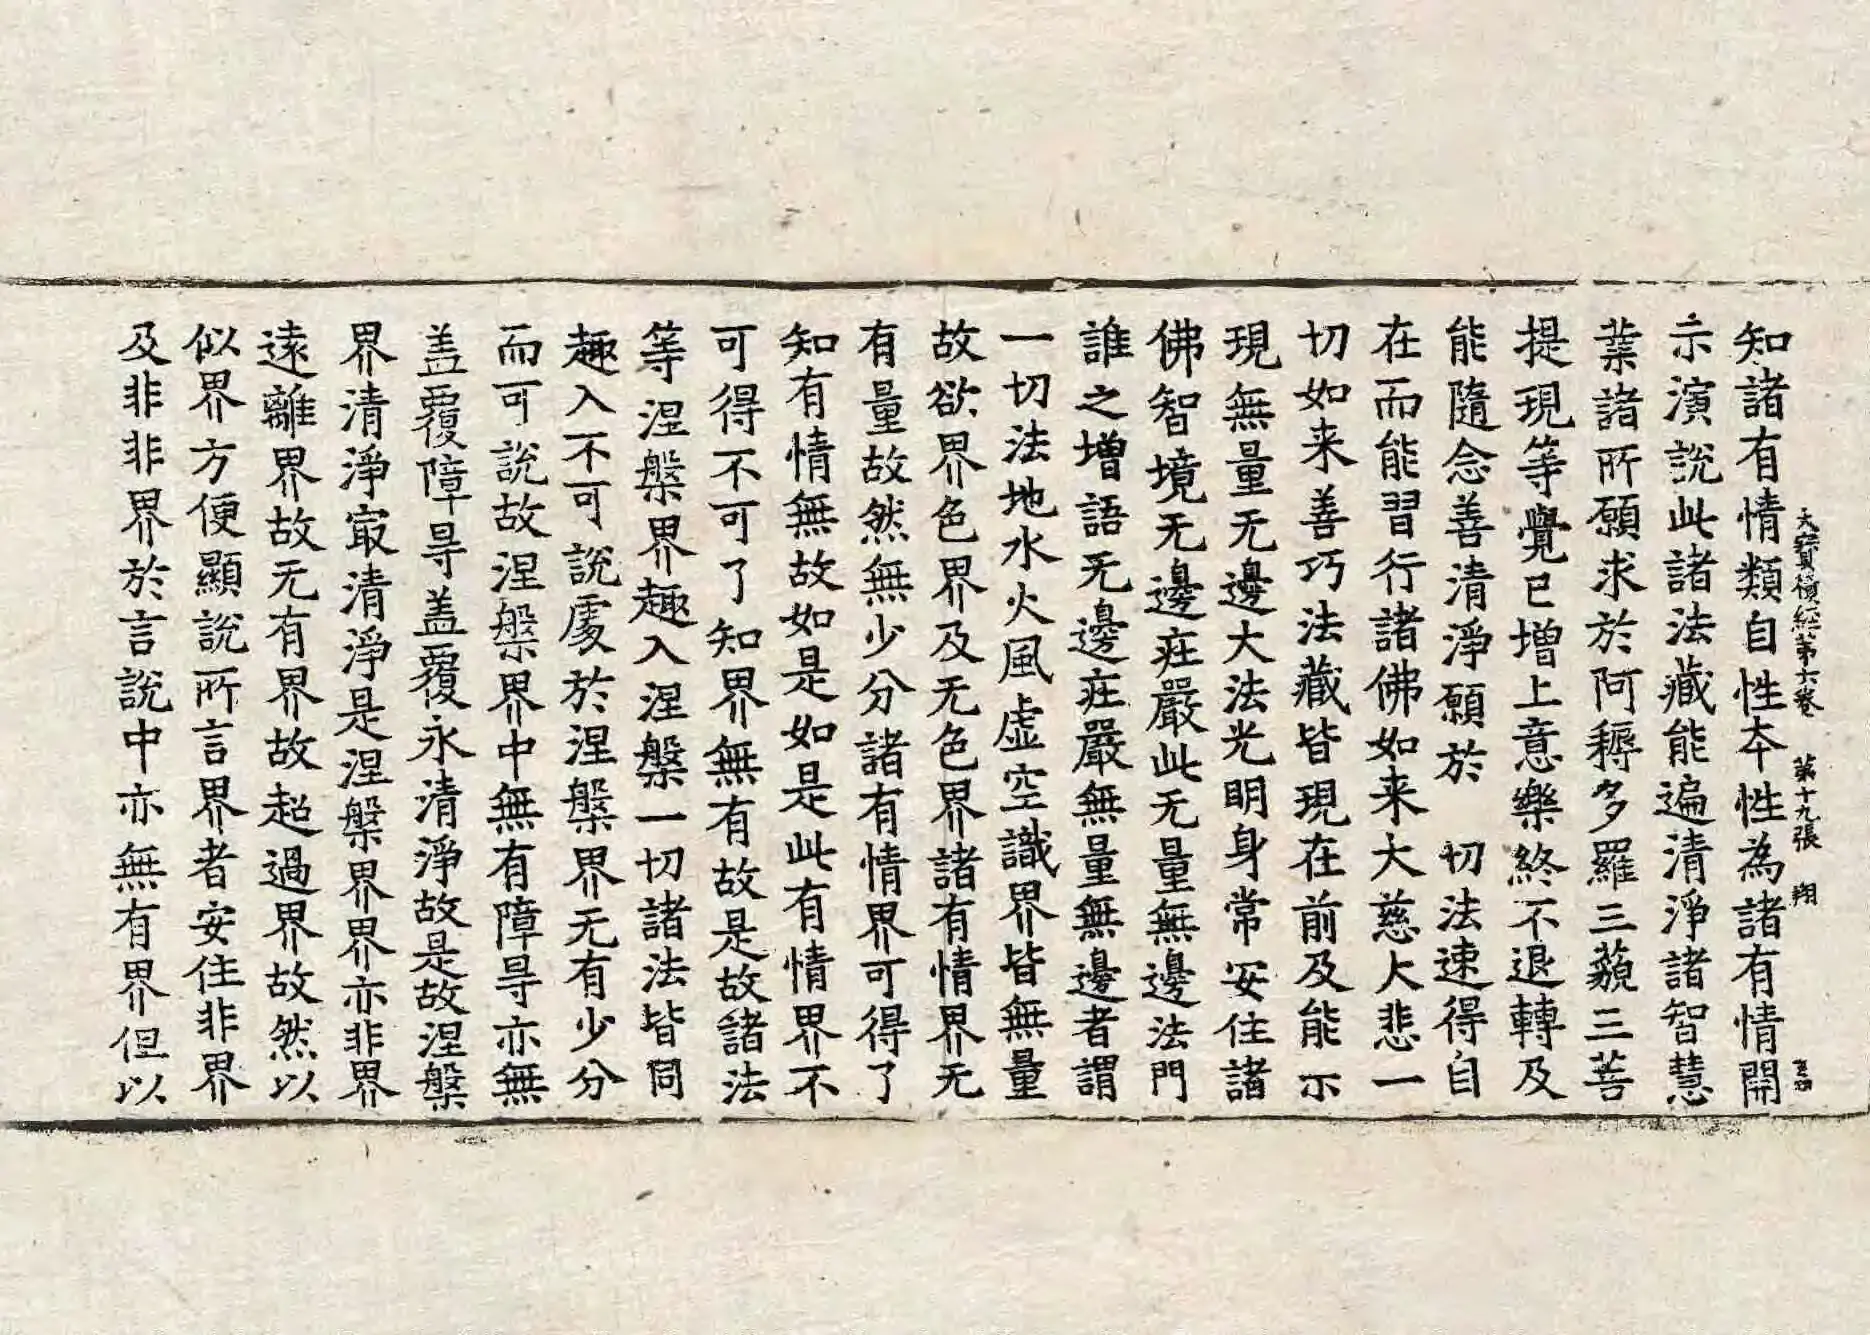 大寶積經第六卷 第十九張 翔
知諸有情類自性本性為諸有情開
示演說此諸法藏能遍清淨諸智慧
業諸所願求於阿耨多羅三藐三菩
提現等覺已增上意樂終不退轉及
能隨念善清淨願於 切法速得自
在而能習行諸佛如来大慈大悲一
切如来善巧法藏皆現在前及能示
現無量无邊大法光明身常安住諸
佛智境无邊莊嚴此无量無邊法門
誰之增語无邊莊嚴無量無邊者謂
一切法地水火風虛空識界皆無量
故欲界色界及无色界諸有情界无
有量故然無少分諸有情界可得了
知有情無故如是如是此有情界不
可得不可了知界無有故是故諸法
等涅槃界趣入涅槃一切諸法皆同
趣入不可說處於涅槃界无有少分
而可說故涅槃界中無有障㝵亦無
盖覆障㝵盖覆永清淨故是故涅槃
界清淨㝡清淨是涅槃界界亦非界
遠離界故无有界故超過界故然以
似界方便顯說所言界者安住非界
及非非界於言說中亦無有界但以